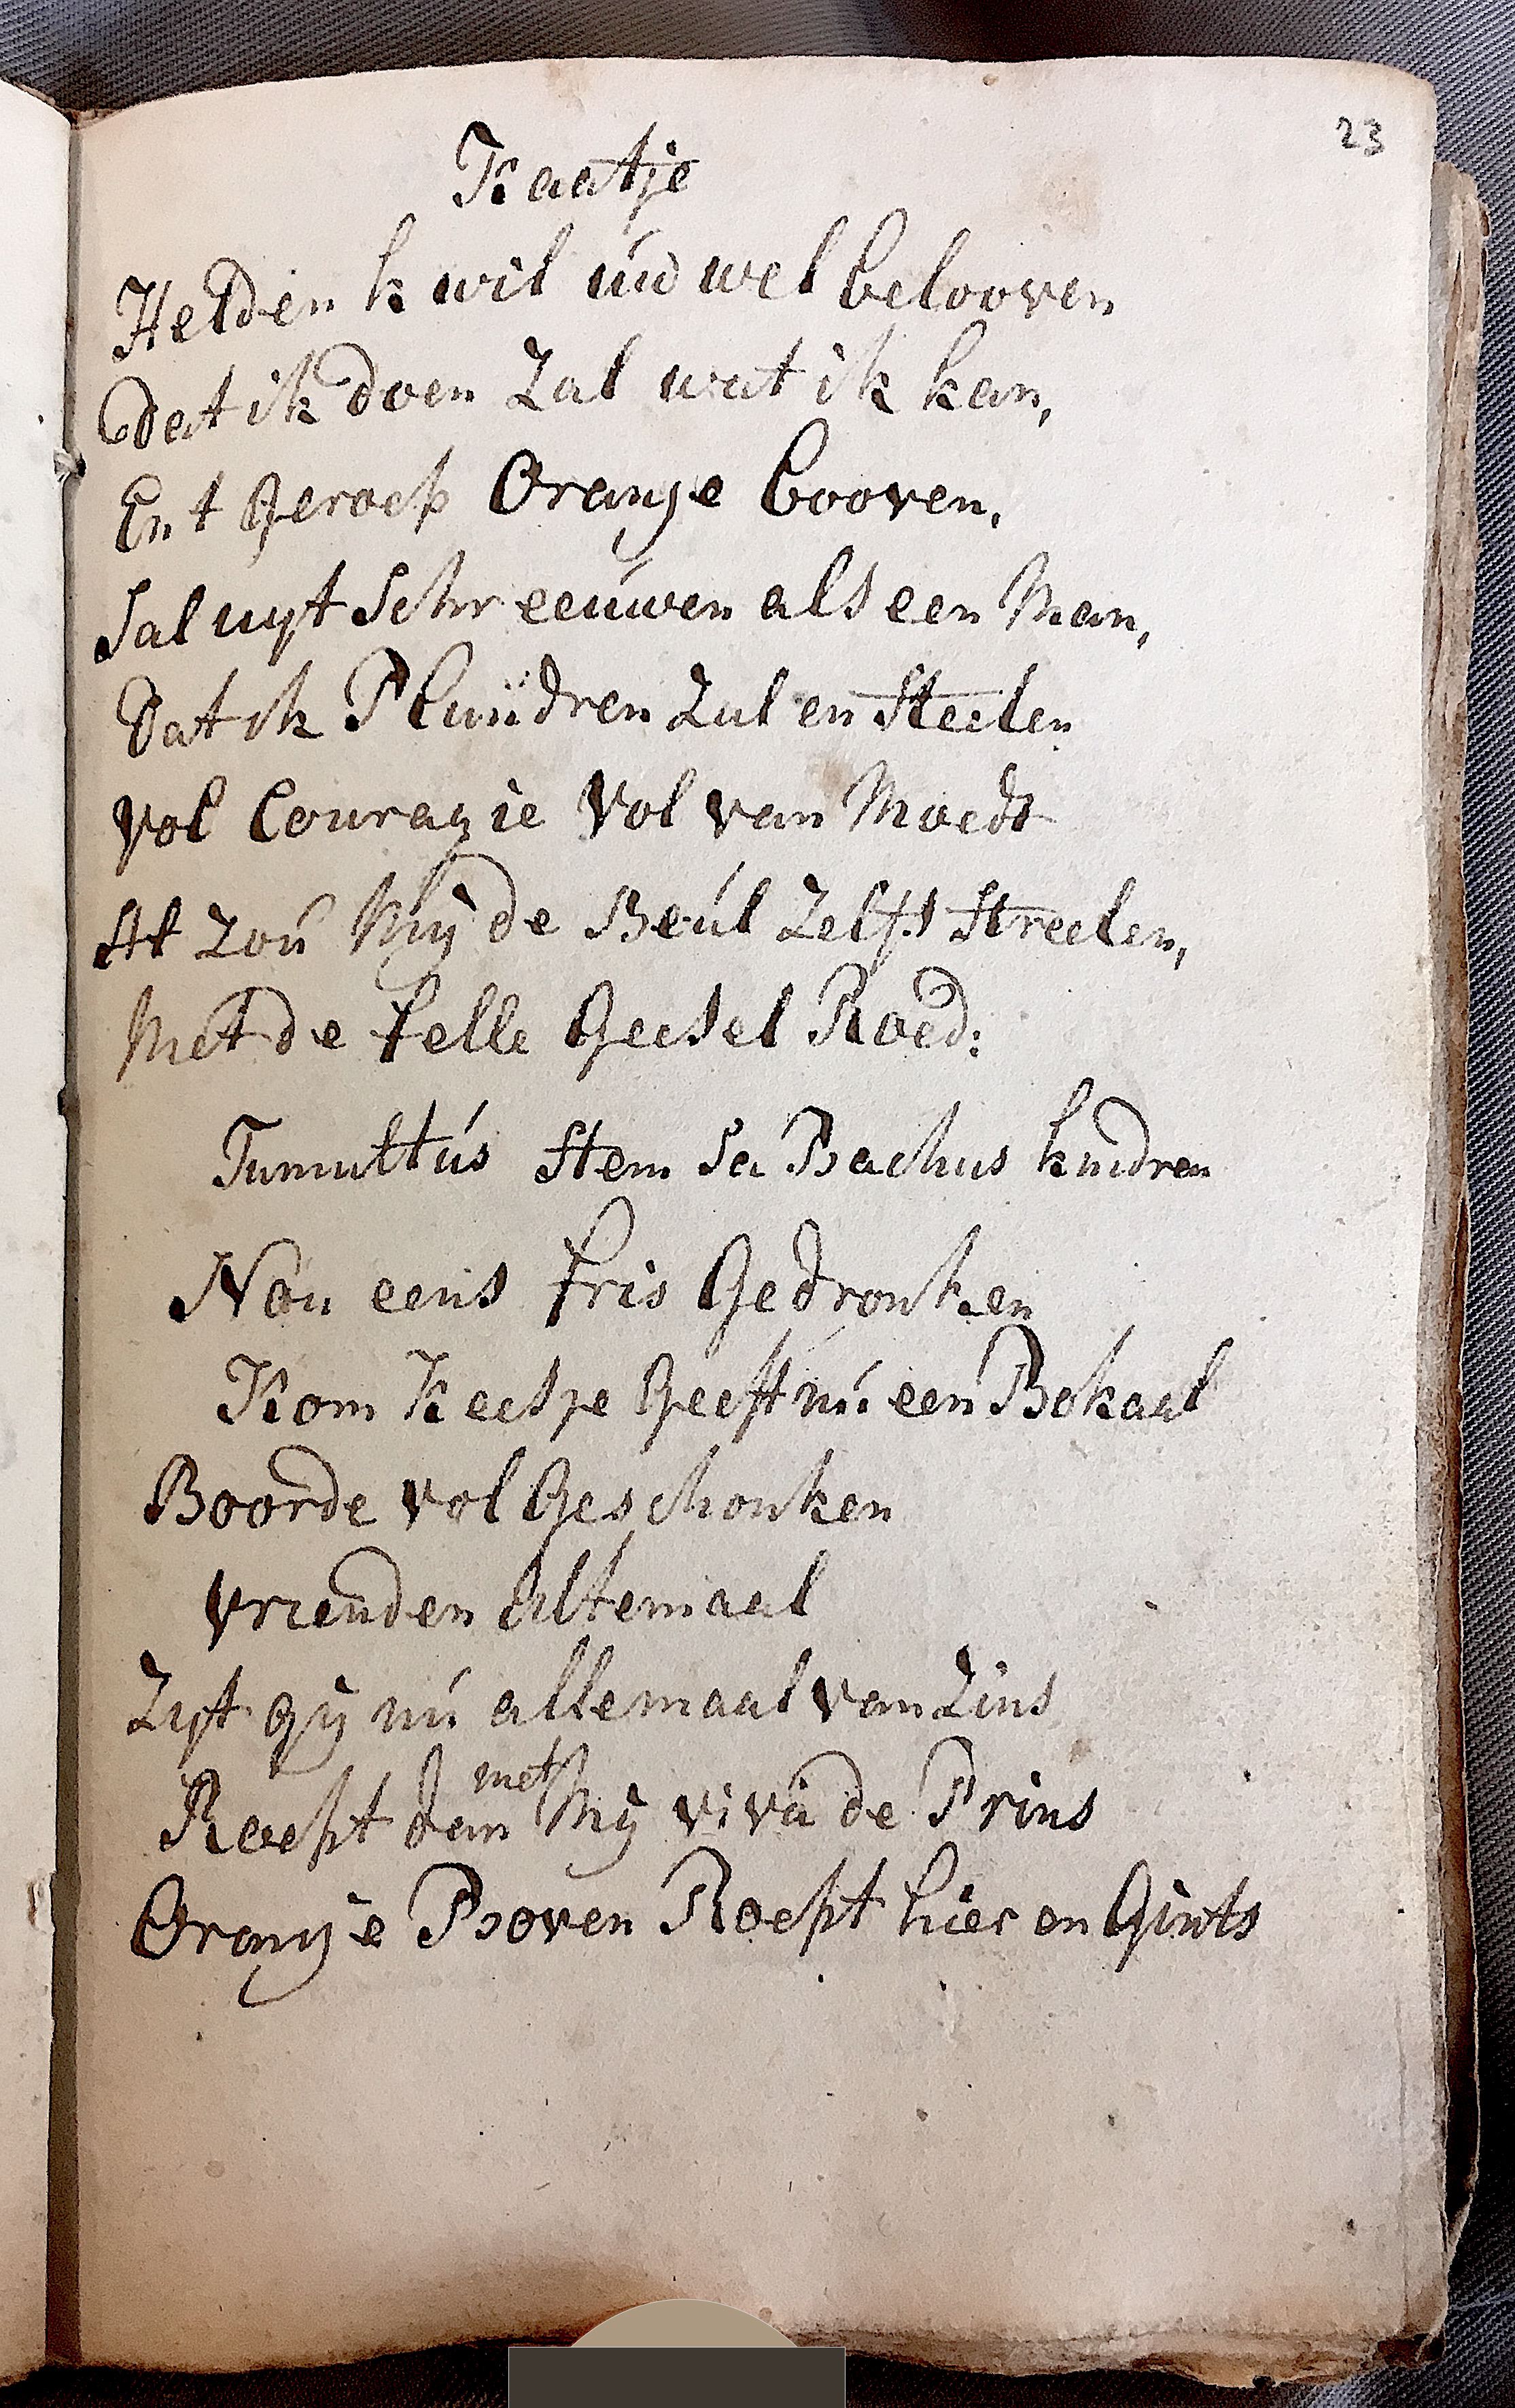 23
Kaatje
Helden k wil úú wel belooven
Dat ik doen Zal wat ik kan,
En t Geroep Oranje booven,
Sal uyt Schreeúwen als een Man,
Dat ik Plundren Zal en Steelen
Vol Couragie Vol van Moedt
Al Zoú Mij de Beúl Zelfs Streelen,
Met de felle Geesel Roed:
Tumultús Stem Sa Bachus kindren
Nou eens fris Gedronken
Kom Keetje Geeft nú een Bokaal
Boorde vol Geschonken
Vrienden Altemaal
Zijt gij nú allemaal van Zins
Roept dan met Mij viva de Prins
Oranje Boven Roept hier en Gints